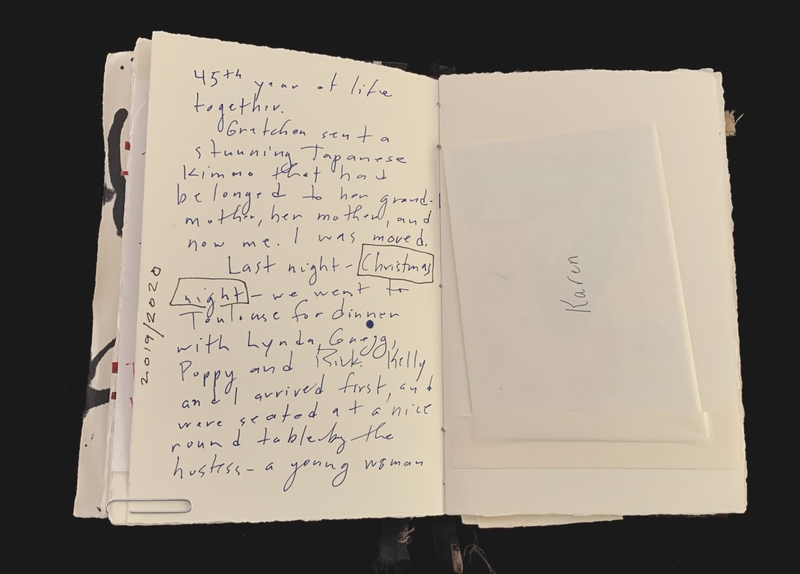 45th year of life
together.
Gretchen sent a
stunning Japanese
Kimmo that had
belonged to her grand-
mother, her mother, and
now me. I was moved.
Last night - Christmas
night - we went to
Toulouse for dinner
with Lynda, Gregg,
Poppy and Rick. Kelly
and I arrived first, and
were seated at a nice
round table by the
hostess - a young woman
2019/2020
Karen